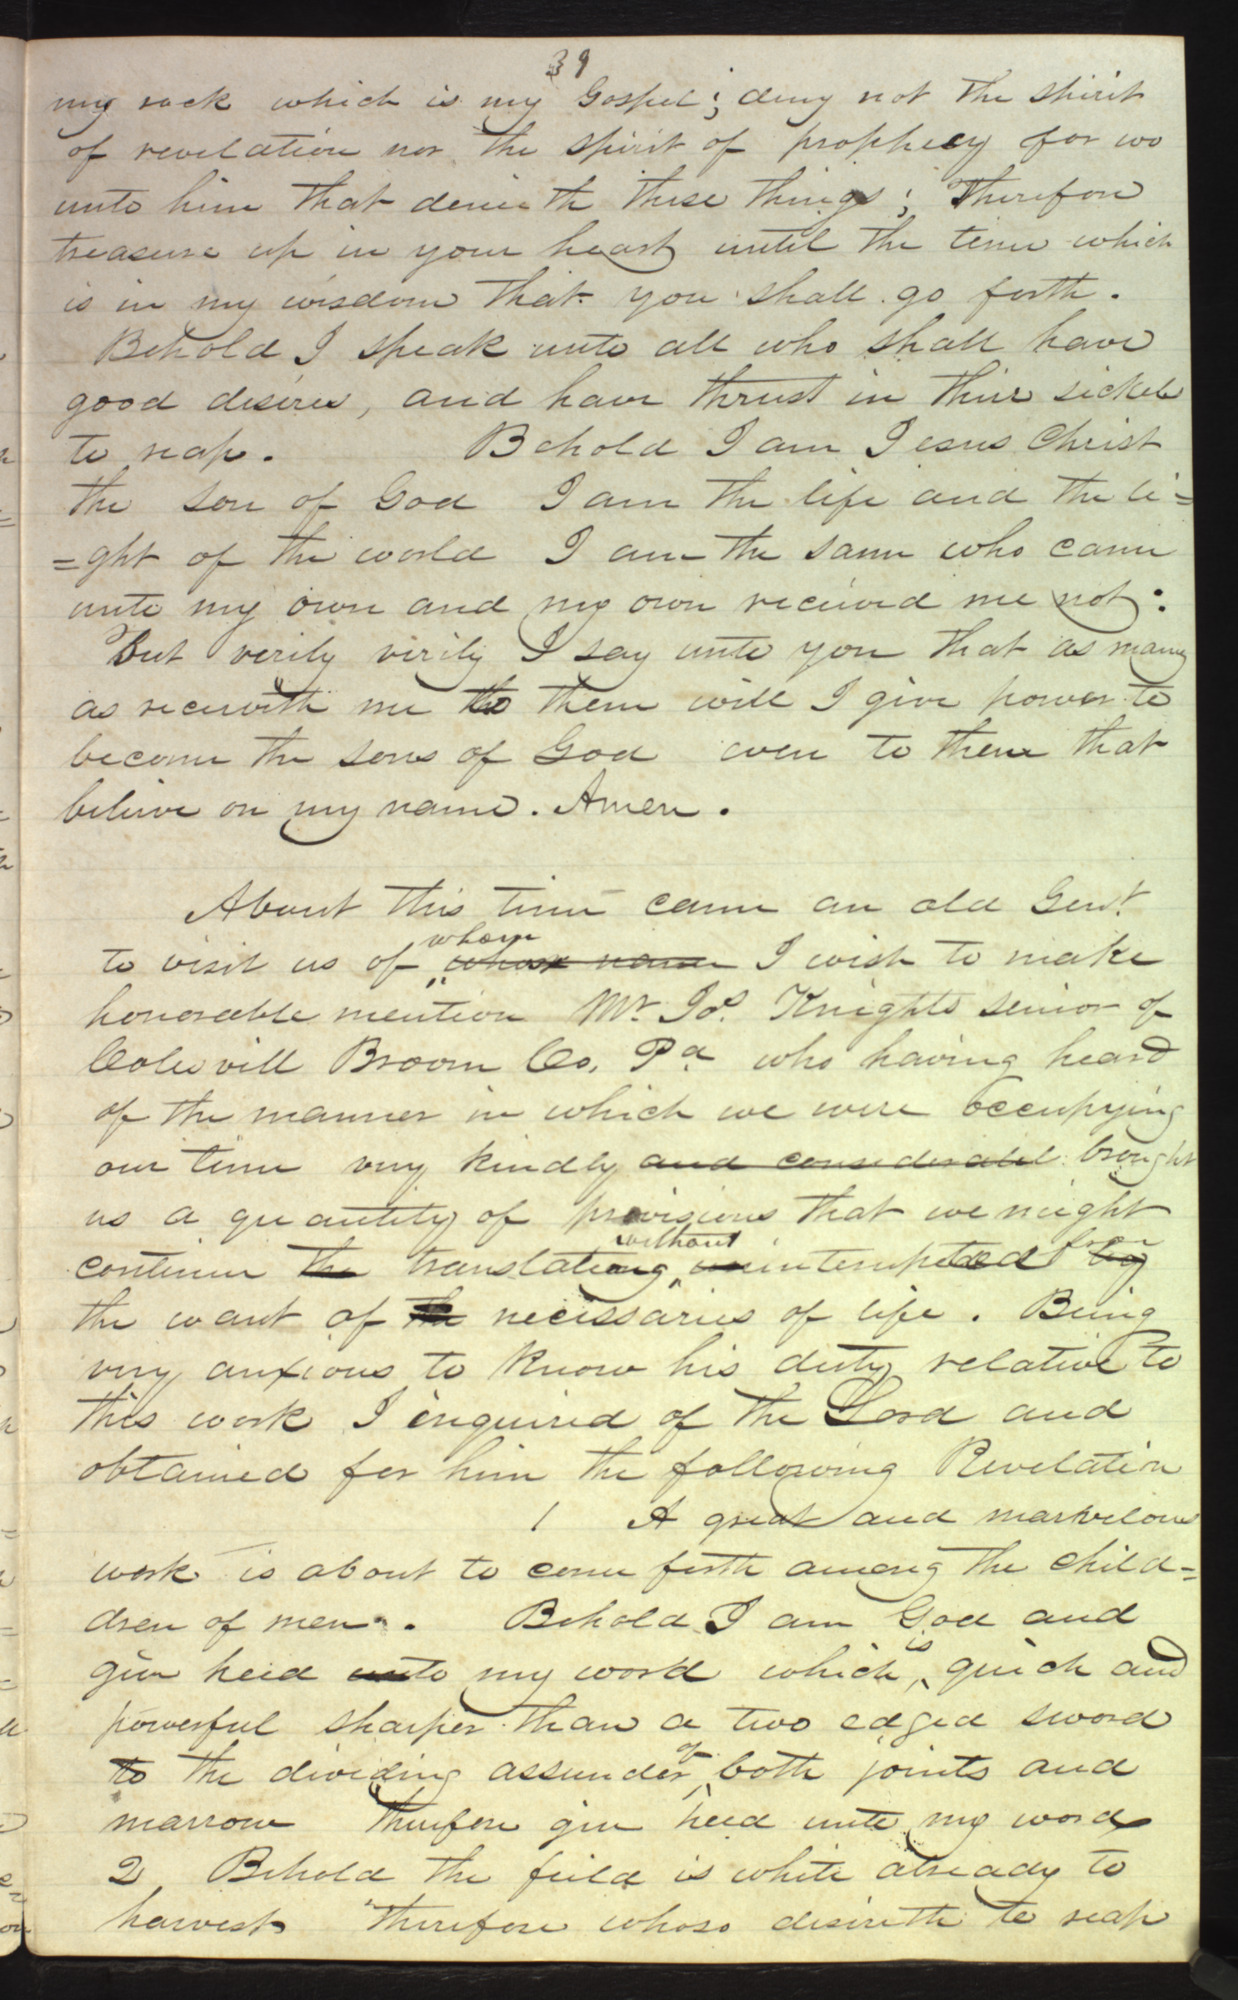 39
my rock which is my Gospel; deny not the spirit
of revelation nor the spirit of prophecy for wo
unto him that denieth these things; Therefore
treasure up in your heart until the time which
is in my wisdom that you shall go forth.
Behold I speak unto all who shall have
good desires, and have thrust in their sickel
to reap. Behold I am Jesus Christ
the son of God I am the life and the li=
=ght of the world I am the same who came
unto my own and my own received me not:
But verily verily I say unto you that as many
as receiveth me to them will I give power to
become the sons of God even to them that
believe on my name. Amen.
About this time came an old Gent
to visit us of whom whose name I wish to make
honorable mention Mr Jos. Knights senior of
Colesvill Broom Co, Pa who having heard
of the manner in which we were occupying
our time very kindly and consideratel brought
us a quantity of provisions that we might
continue the translating without uninterrupted by
the want of the necessaries of life. Being
very anxious to know his duty relative to
this work I enquired of the Lord and
obtained for him the following Revelation
1 A great and marvelous
work is about to come forth among the child=
dren of men. Behold I am God and
give heed unto my word which is quick and
powerful sharper than a two edged sword
to the dividing assunder of both joints and
marrow Therefore give heed unto my word
2 Behold the feild is white already to
harvest Therefore whoso desireth to reap